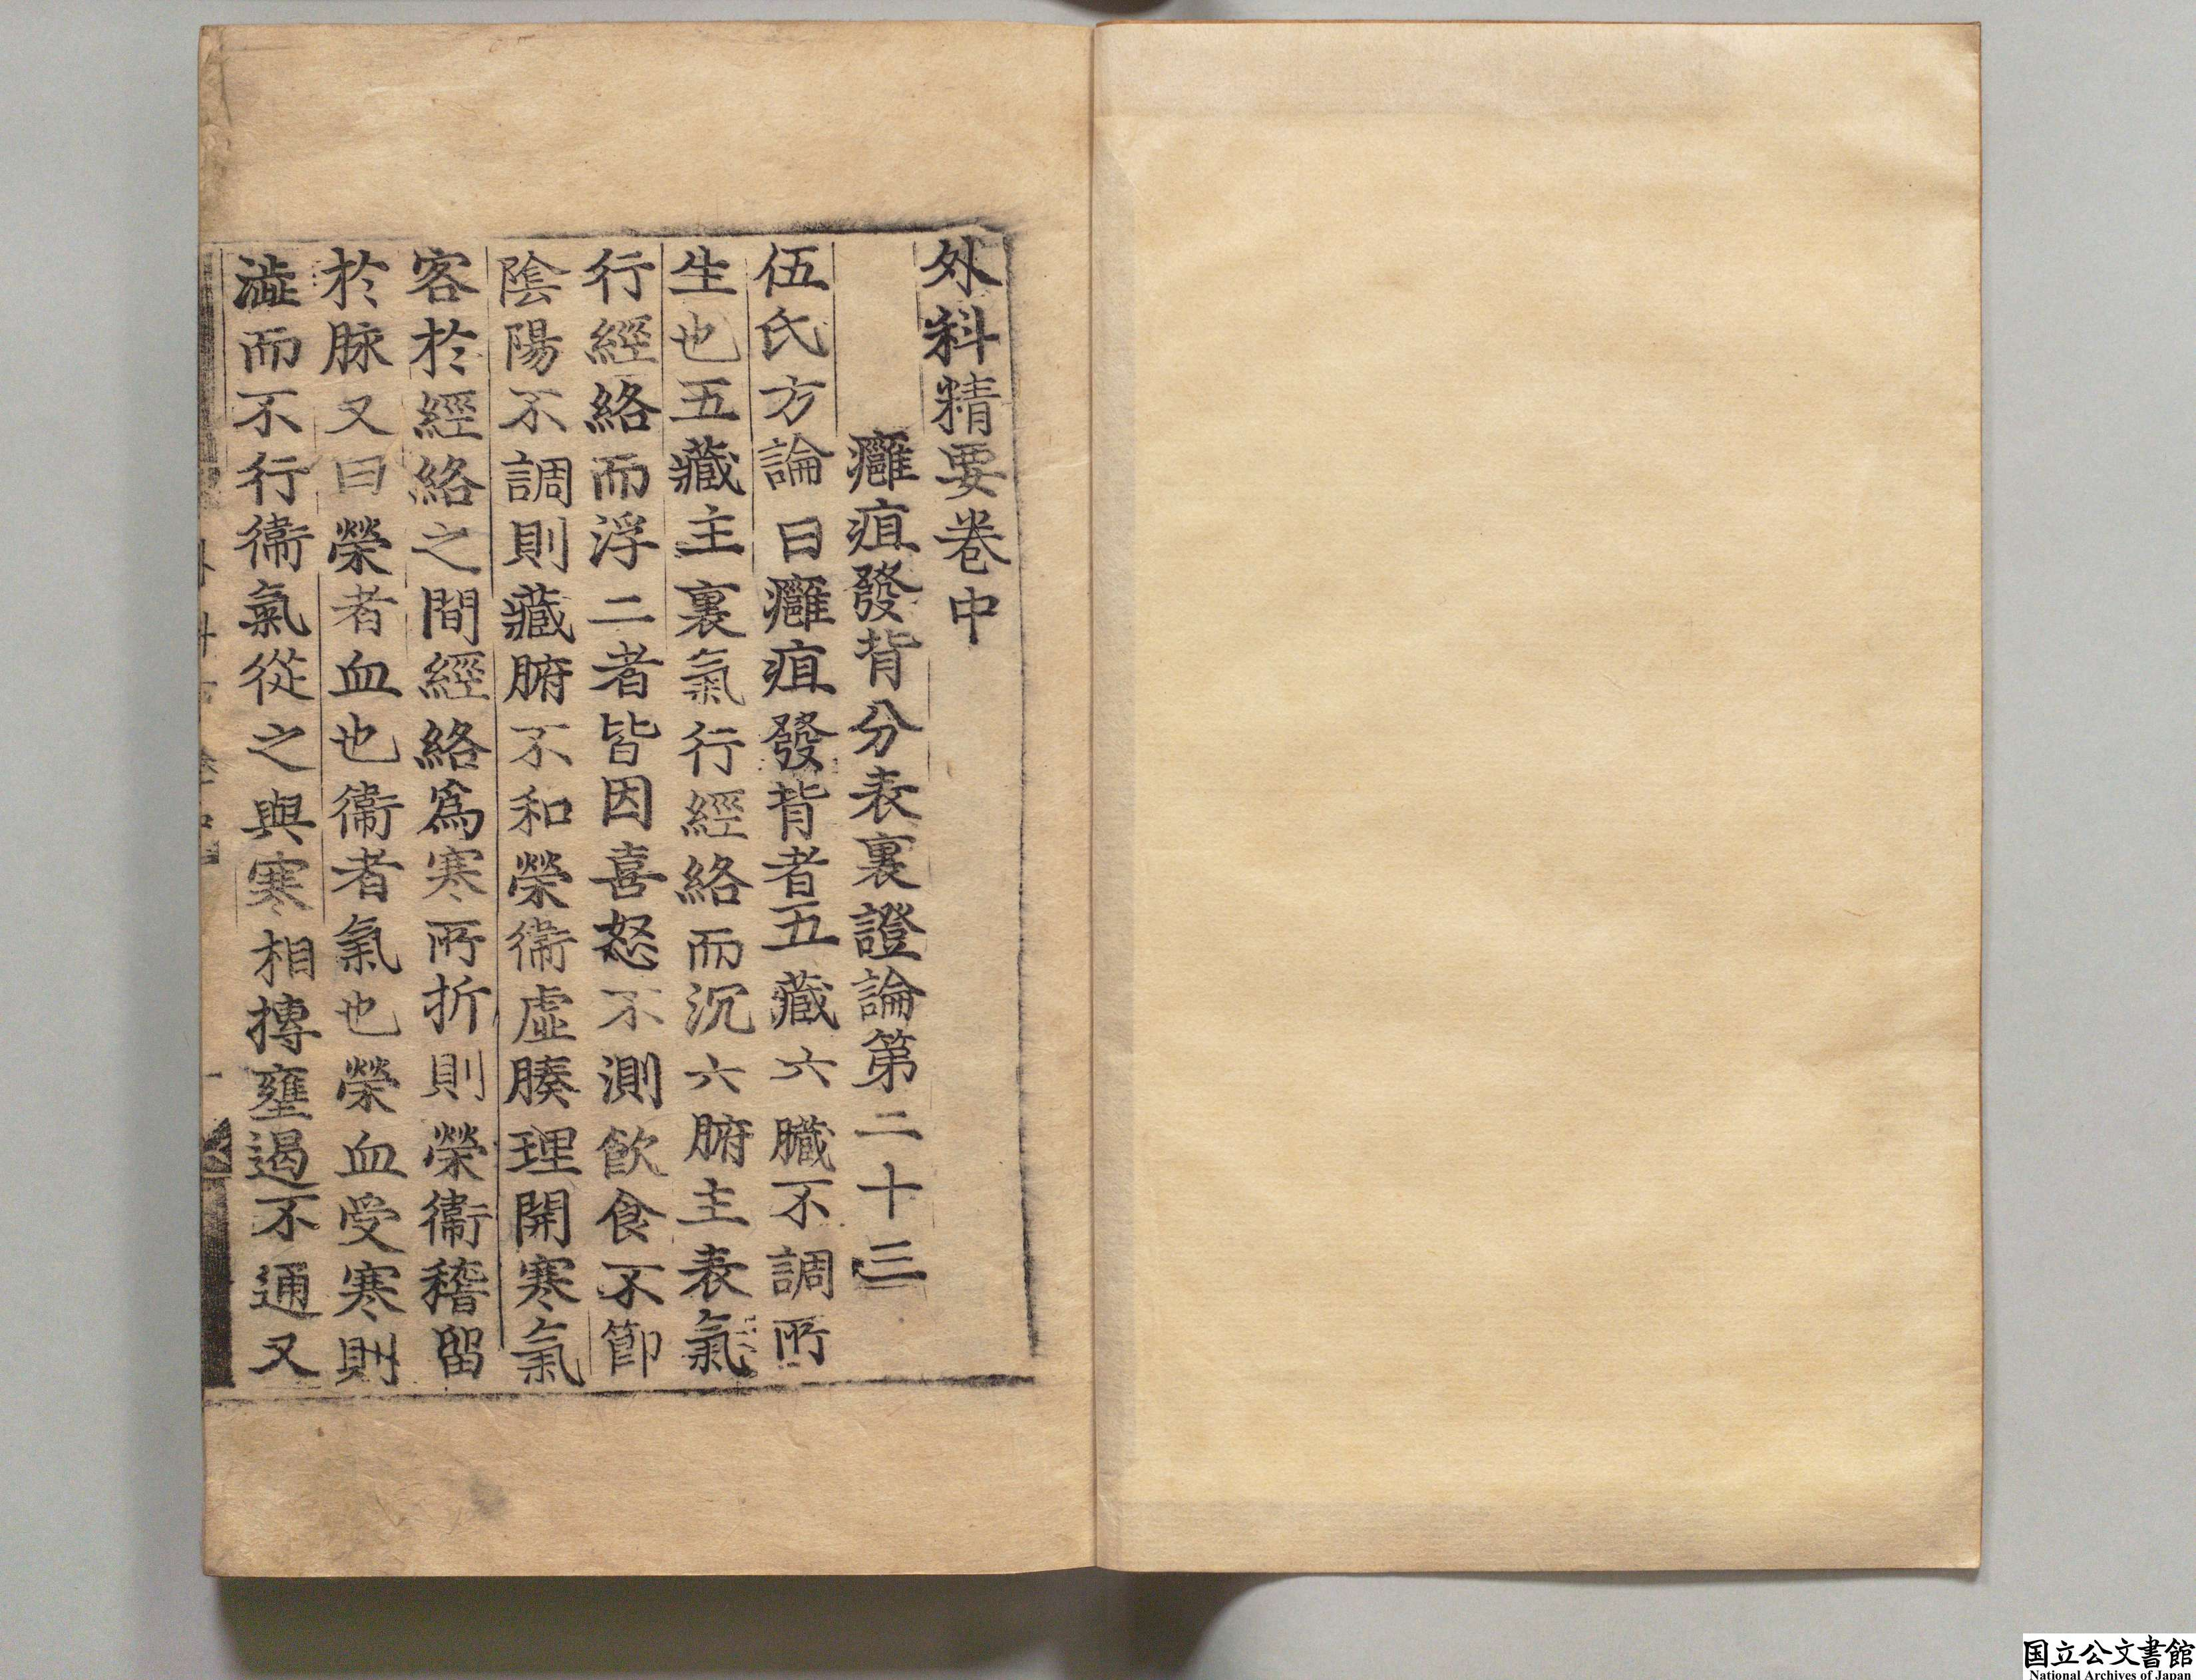 外科精要卷中
癰疽發背分表裏證論第二十三
伍氏方論曰癰疽發背者五藏六臟不調所
生也五藏主裏氣行經絡而沉六腑主表氣
行經絡而浮二者皆因喜怒不測飲食不節
陰陽不調則藏腑不和榮衛虛腠理開寒氣
客於經絡之間經絡爲寒所折則榮衛稽留
於脉又曰榮者血也衛者氣也榮血受寒則
澁而不行衛氣從之與寒相摶壅遏不通又
国立公文書館
National Archives of Japan